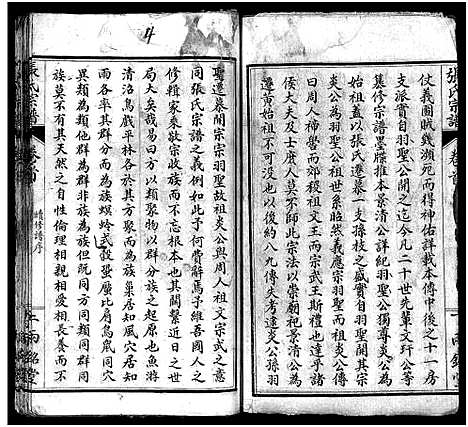 張氏宗譜
卷首
仗義團賊幾瀕死而得神佑詳載本傳中後之十一房
支派實自羽聖公開之迄今凡二十世先輩文玕公等
墓修宗譜墨牒推本炎公詳紀羽聖公獨尊炎公為
始祖蓋以張氏遷基一支孫枝之盛實自羽聖公其宗
炎公為羽聖公祖世系昭然義應宗羽聖而祖炎公傳
曰周人禘嚳而郊稷祖文王而宗武王斯禮也達乎諸
侯大夫及士庶人莫不師此宗法以崇廟祀清河張氏
遷黃始祖不可記憶後約八九傳失考達炎公孫羽
聖遷墓開宗宗羽聖故祖炎公與周人祖文宗武之意
同張氏宗譜之義例如此予何費辭焉予維吾國人之
修輯家乘敬宗收族而不忘根本也其關繫近日之世
局大矣哉易曰方以類聚物以群分族之起原也魚游
清沼鳥戲平林各於其方聚而為族巢居知風穴居知
雨各率其群分而為族螟蛉式穀張腹比肩鳥鼠同穴
異類為類他群為群非族為族但既同方同類同群同
族莫不有其天然之自性倫理相親相愛相長養而不
張氏宗譜
卷首
續修譜序